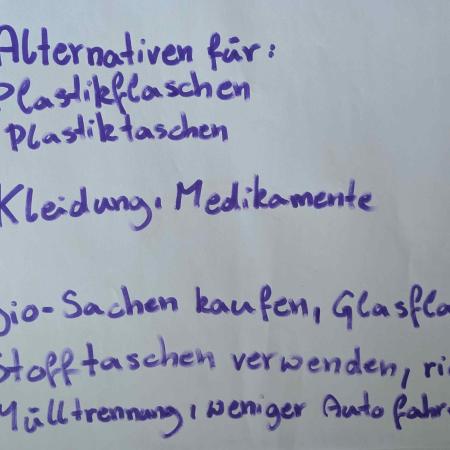 Alternativen für:
Plastikflaschen
Plastiktaschen
Kleidung, Medikamente
Bio-Sachen kaufen, Glasfla
Stofftaschen verwenden, ri
Mülltrennung, weniger Auto fahr